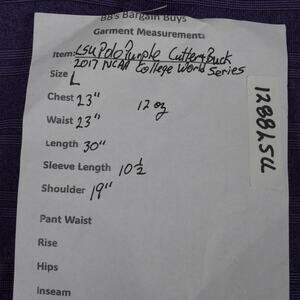 BB's Bargain Buys
Garment Measurements
Item: LSU Polo Purple Cutter & Buck
2017 NCAA College World Series
Size L
Chest 23" 12 oz
Waist 23"
Length 30"
Sleeve Length 10 1/2
Shoulder 19"
Pant Waist
Rise
Hips
Inseam